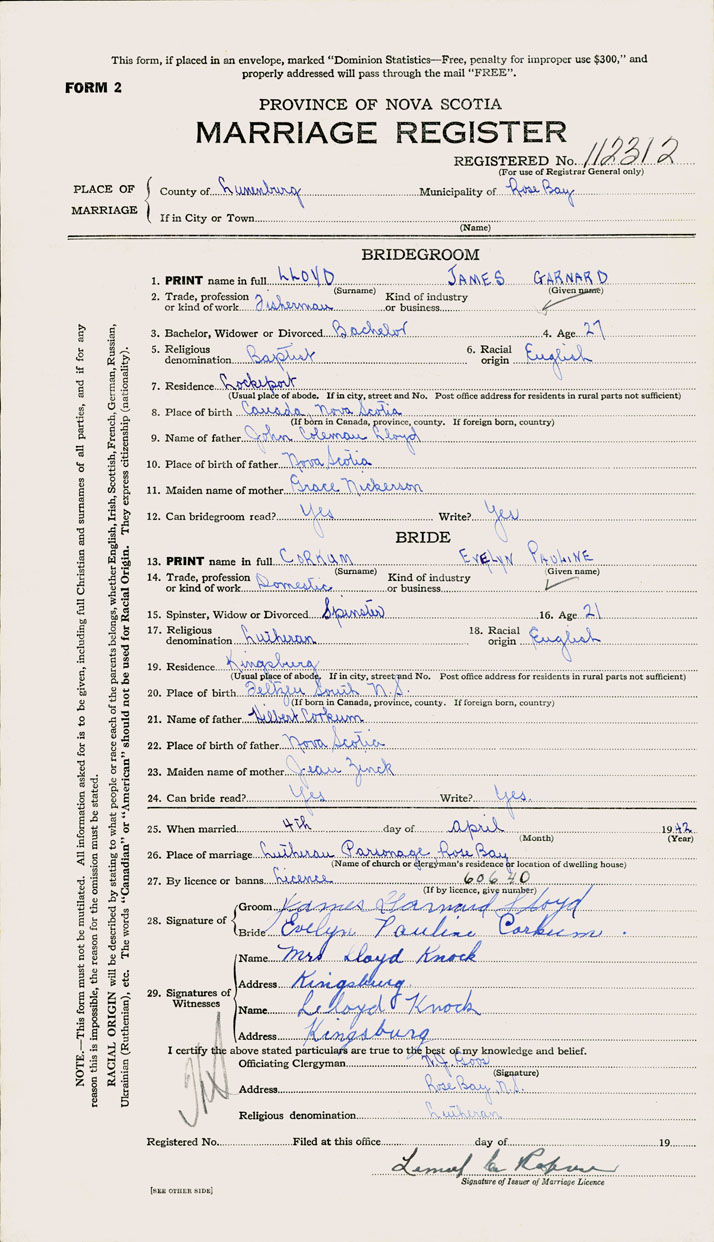 This form, if placed in an envelope, marked "Dominion Statistics—Free, penalty for improper use $300," and
properly addressed will pass through the mail "FREE".
FORM 2
PROVINCE OF NOVA SCOTIA
MARRIAGE REGISTER
REGISTERED No. 112312
(For use of Registrar General only)
PLACE OF MARRIAGE
County of Lunenburg Municipality of Rose Bay
If in City or Town
(Name)
BRIDEGROOM
1. PRINT name in full LLOYD JAMES GARNARD
(Surname) (Given name)
2. Trade, profession or kind of work Fisherman Kind of industry or business
3. Bachelor, Widower or Divorced Bachelor 4. Age 27
5. Religious denomination Baptist 6. Racial origin English
7. Residence Lockeport
(Usual place of abode. If in city, street and No. Post office address for residents in rural parts not sufficient)
8. Place of birth Canada, Nova Scotia
(If born in Canada, province, county. If foreign born, country)
9. Name of father John Coleman Lloyd
10. Place of birth of father Nova Scotia
11. Maiden name of mother Grace Nickerson
12. Can bridegroom read? Yes Write? Yes
BRIDE
13. PRINT name in full CORKUM EVELYN PAULINE
(Surname) (Given name)
14. Trade, profession or kind of work Domestic Kind of industry or business
15. Spinster, Widow or Divorced Spinster 16. Age 21
17. Religious denomination Lutheran 18. Racial origin English
19. Residence Kingsburg
(Usual place of abode. If in city, street and No. Post office address for residents in rural parts not sufficient)
20. Place of birth Feltzen South N.S.
(If born in Canada, province, county. If foreign born, country)
21. Name of father Hilbert Corkum
22. Place of birth of father Nova Scotia
23. Maiden name of mother Jean Zinck
24. Can bride read? Yes Write? Yes.
25. When married 4th day of April 1942
(Month) (Year)
26. Place of marriage Lutheran Parsonage, Rose Bay
(Name of church or clergyman's residence or location of dwelling house)
27. By licence or banns Licence 60640
(If by licence, give number)
28. Signature of
Groom James Garnard Lloyd
Bride Evelyn Pauline Corkum.
29. Signatures of Witnesses
Name Mrs Lloyd Knock
Address Kingsburg
Name Lelloyd Knock
Address Kingsburg
I certify the above stated particulars are true to the best of my knowledge and belief.
Officiating Clergyman
(Signature)
Address Rose Bay, N.S.
Religious denomination Lutheran
Registered No. Filed at this office day of 19
Signature of Issuer of Marriage Licence
[SEE OTHER SIDE]
NOTE.—This form must not be mutilated. All information asked for is to be given, including full Christian and surnames of all parties, and if for any
reason this is impossible, the reason for the omission must be stated.
RACIAL ORIGIN will be described by stating to what people or race each of the parents belongs, whether English, Irish, Scottish, French, German, Russian,
Ukrainian (Ruthenian), etc. The words "Canadian" or "American" should not be used for Racial Origin. They express citizenship (nationality).